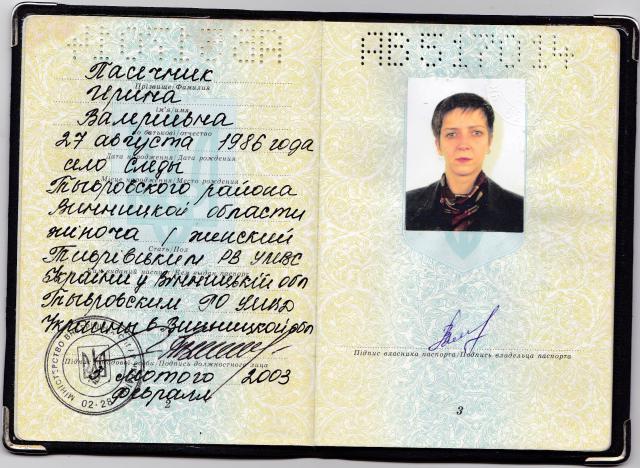 Пасечник
Прізвище/Фамилия
Ирина
ім'я/имя
Валериевна
по батькові/отчество
27 августа 1986 года
Дата народження/Дата рождения
село
Місце народження/Место рождения
Тывровского района
Винницкой области
жіноча / женский
Стать/Пол
Тиврівським РВ УМВС
України у Вінницькій обл
Тывровским РО УМВД
Украины в Винницкой обл
Підпис посадової особи/Подпись должностного лица
лютого 2003
февраля
МІНІСТЕРСТВО
02-28
2
АВ 517014
Підпис власника паспорта/Подпись владельца паспорта
3